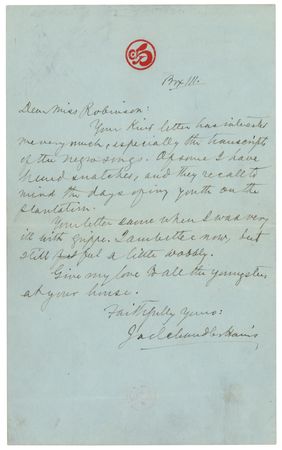 Box 111.
Dear Miss Robinson:
Your kind letter has interested
me very much, especially the transcript
of the negro songs. Of some I have
heard snatches, and they recall to
mind the days of my youth on the
plantation.
Your letter came when I was very
ill with grippe. I am better now, but
still feel a little wobbly.
Give my love to all the youngsters
at your house.
Faithfully Yours:
Joel Chandler Harris